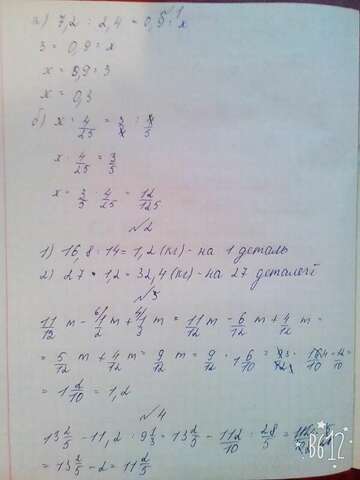 а) 7,2 : 2,4 = 0,9 : x
3 = 0,9 : x
x = 0,9 : 3
x = 0,3
б) x : 4/25 = 3/4 : 4/5
x · 4/25 = 3/5
x = 3/5 · 4/25 = 12/125
№2
1) 16,8 : 14 = 1,2 (кг) - на 1 деталь
2) 27 · 1,2 = 32,4 (кг) - на 27 деталей
№3
11/12 m - 1/2 m + 1/3 m = 11/12 m - 6/12 m + 4/12 m =
= 5/12 m + 4/12 m = 9/12 m = 9/12 · 1 6/10
= 1 2/10 = 1,2
№4
13 2/5 - 11,2 : 9 1/3 = 13 2/5 - 112/10 : 28/5
= 13 2/5 - 2 = 11 2/5
B612